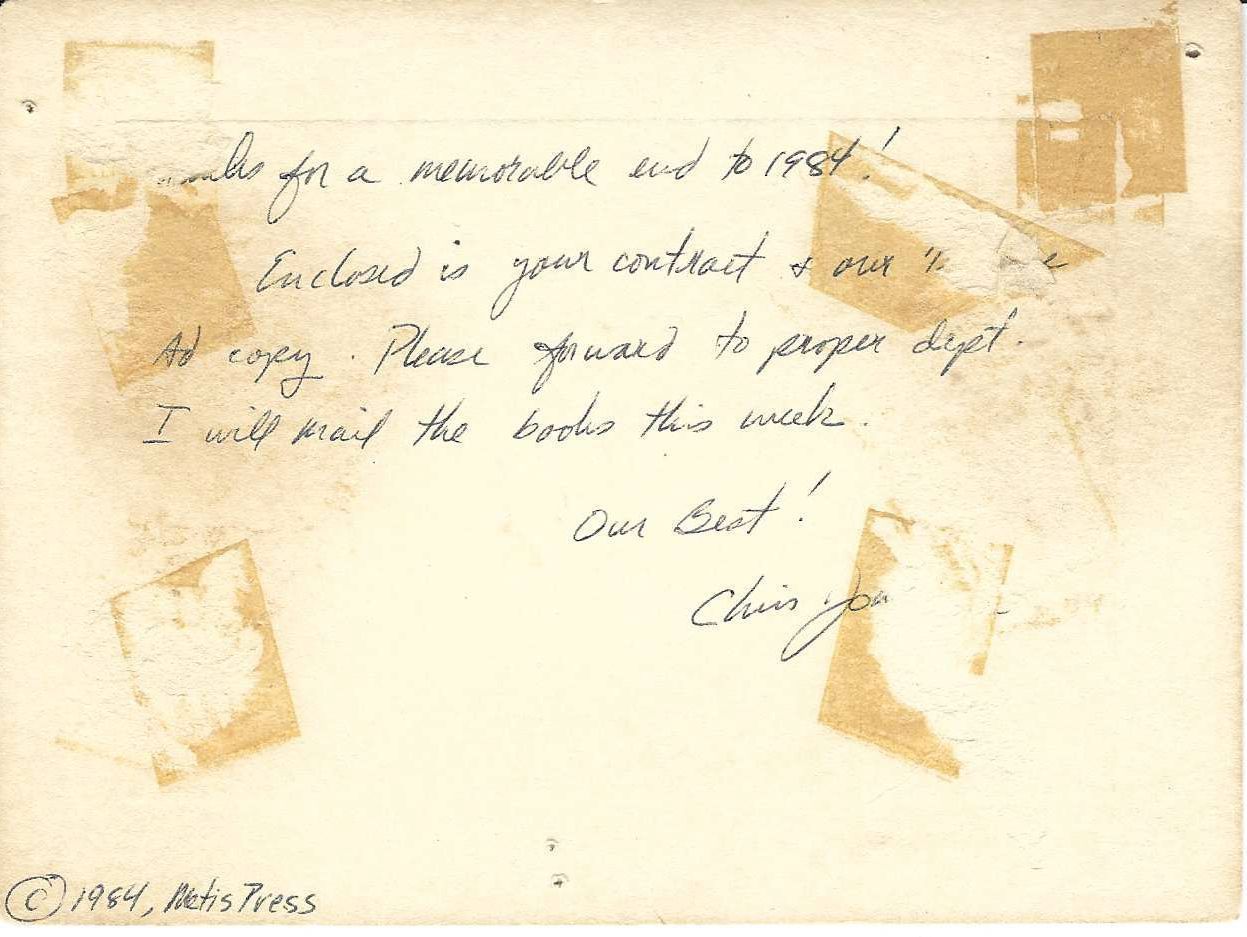 for a memorable end to 1984!
Enclosed is your contract & our
Ad copy. Please forward to proper dept.
I will mail the books this week.
Our Best!
Chris
© 1984, Metis Press